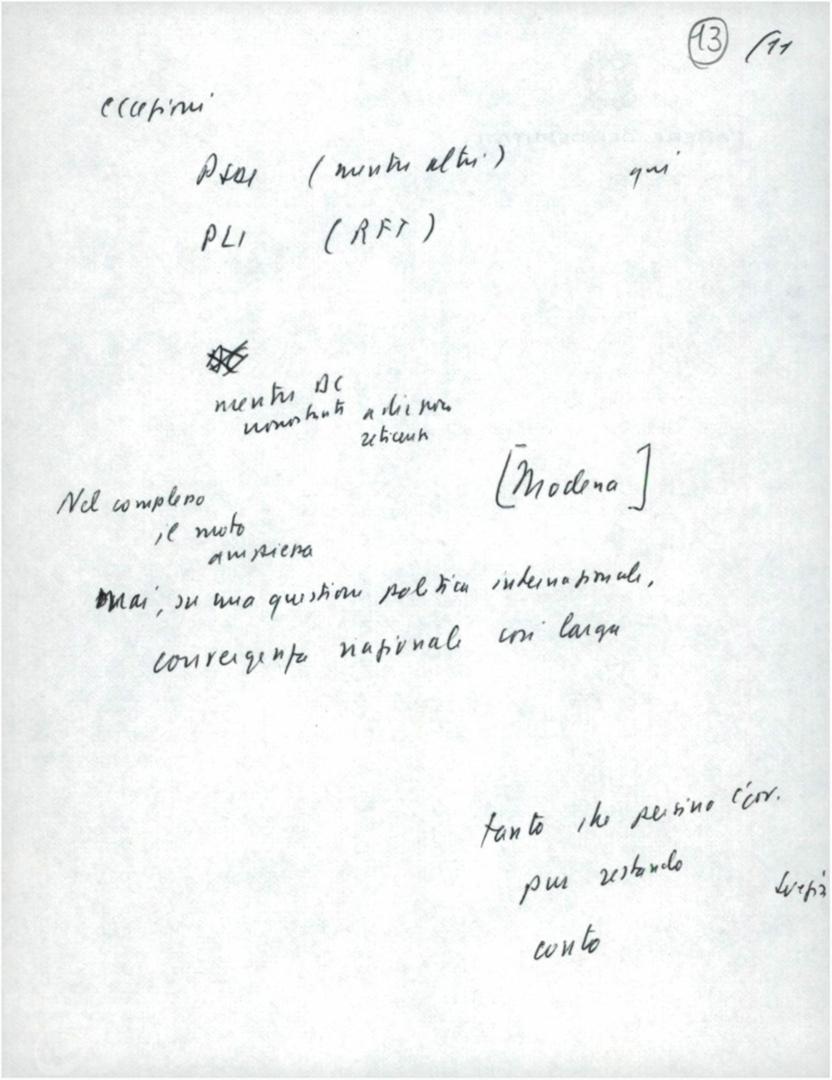 13 /11
eccezioni
PSDI (mentre altri) qui
PLI (RFT)
mentre DC
nonostante
reticente
[Modena]
Nel complesso
il moto
ampiezza
mai, su una questione politica internazionale,
convergenza nazionale così larga
tanto che persino
pur restando
conto